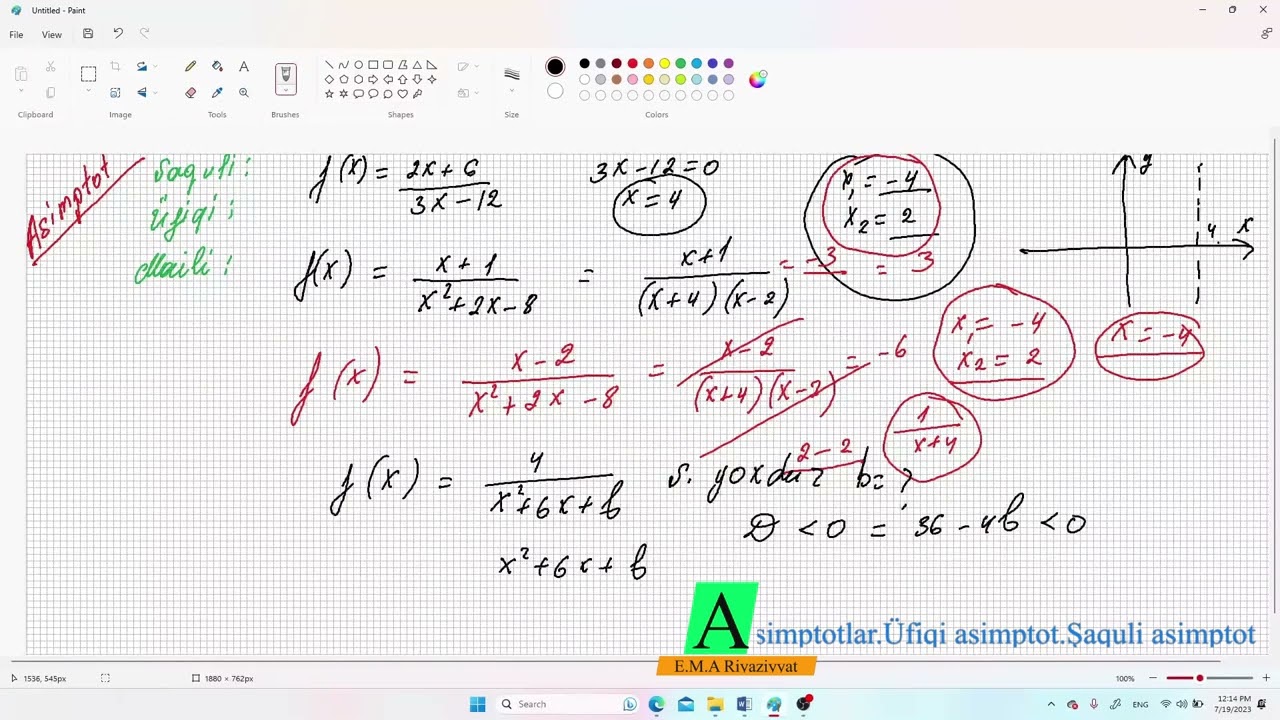 Untitled - Paint
File View
Clipboard Image Tools Brushes Shapes Size Colors
Asimptot
Şaquli:
Üfiqi:
Maili:
f(x) = 2x+6 / 3x-12
3x-12=0
x=4
x₁ = -4
x₂ = 2
y
4 x
f(x) = x+1 / x²+2x-8 = x+1 / (x+4)(x-2) = -3 = 3
f(x) = x-2 / x²+2x-8 = x-2 / (x+4)(x-2) = -6
x₁ = -4
x₂ = 2
x=-4
1 / x+4
2-2
f(x) = 4 / x²+6x+b ş. yoxdur b=?
D < 0 = 36-4b < 0
x²+6x+b
Asimptotlar.Üfiqi asimptot.Şaquli asimptot
E.M.A Riyaziyyat
1536, 545px 1880 × 762px 100%
Search ENG 12:14 PM
7/19/2023